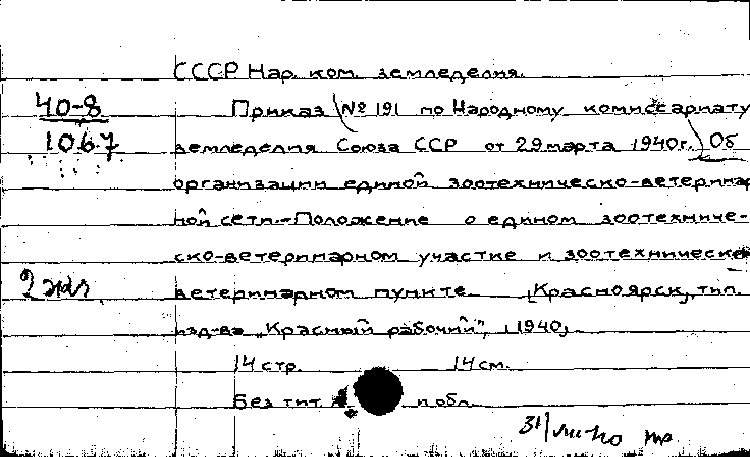 СССР Нар. ком. земледелия.
40-8
1067
Приказ (№ 191 по Народному комиссариату
земледелия Союза ССР от 29 марта 1940г.) Об
организации единой зоотехническо-ветеринар
ной сети.-Положение о едином зоотехниче-
ско-ветеринарном участке и зоотехническо
2 экз.
ветеринарном пункте. [Красноярск, тип.
изд-ва „Красный рабочий", 1940]
14 стр. 14 см.
Без тит. л. и обл.
31/